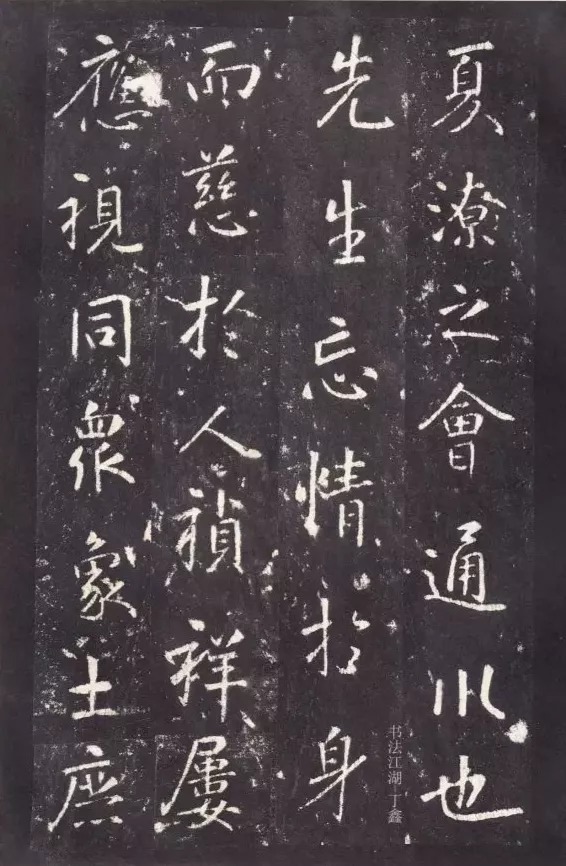 夏潦之會通川也
先生忘情於身
而慈於人禎祥屢
應視同眾象士庶
书法江湖 丁鑫